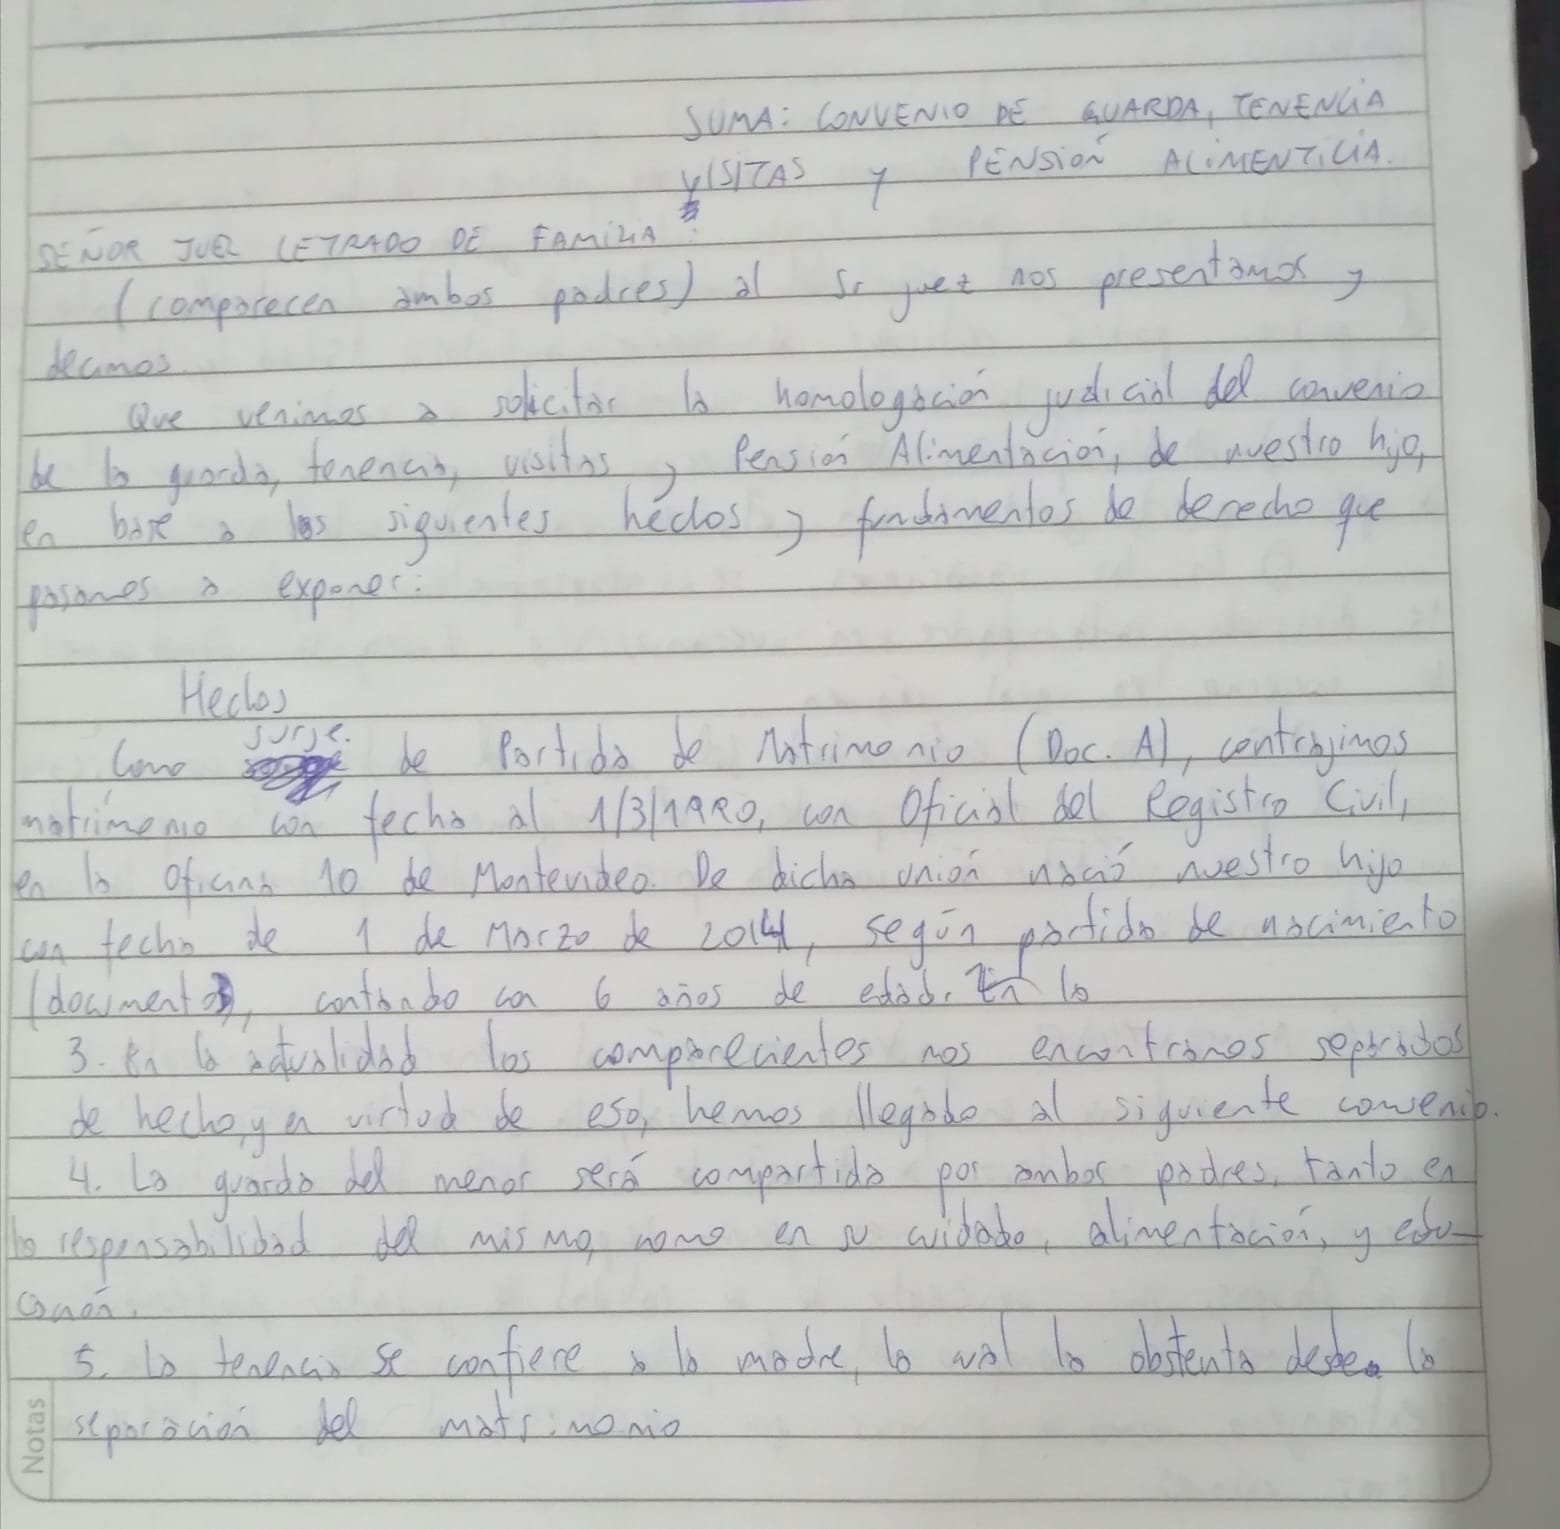 SUMA: CONVENIO DE GUARDA, TENENCIA
VISITAS y PENSIÓN ALIMENTICIA.
SEÑOR JUEZ LETRADO DE FAMILIA:
(comparecen ambos padres) al Sr juez nos presentamos y
decimos.
Que venimos a solicitar la homologación judicial del convenio
de la guarda, tenencia, visitas y Pensión Alimentación, de nuestro hijo,
en base a los siguientes hechos y fundimentos de derecho que
pasamos a exponer:
Hechos
Como surje de Partida de Matrimonio (Doc. A), contrajimos
matrimonio con fecha al 1/3/1990, con Oficial del Registro Civil,
en la Oficina 10 de Montevideo. De dicha unión nació nuestro hijo
con fecha de 1 de Marzo de 2014, según partida de nacimiento
(documento B), contando con 6 años de edad. En la
3. En la actualidad los comparecientes nos encontramos separados
de hecho, y en virtud de eso, hemos llegado al siguiente convenio.
4. La guarda del menor será compartida por ambos padres, tanto en
la responsabilidad del mismo, como en su cuidado, alimentación, y edu-
cación.
5. La tenencia se confiere a la madre, la cual la obstenta desde la
separación del matrimonio
Notas